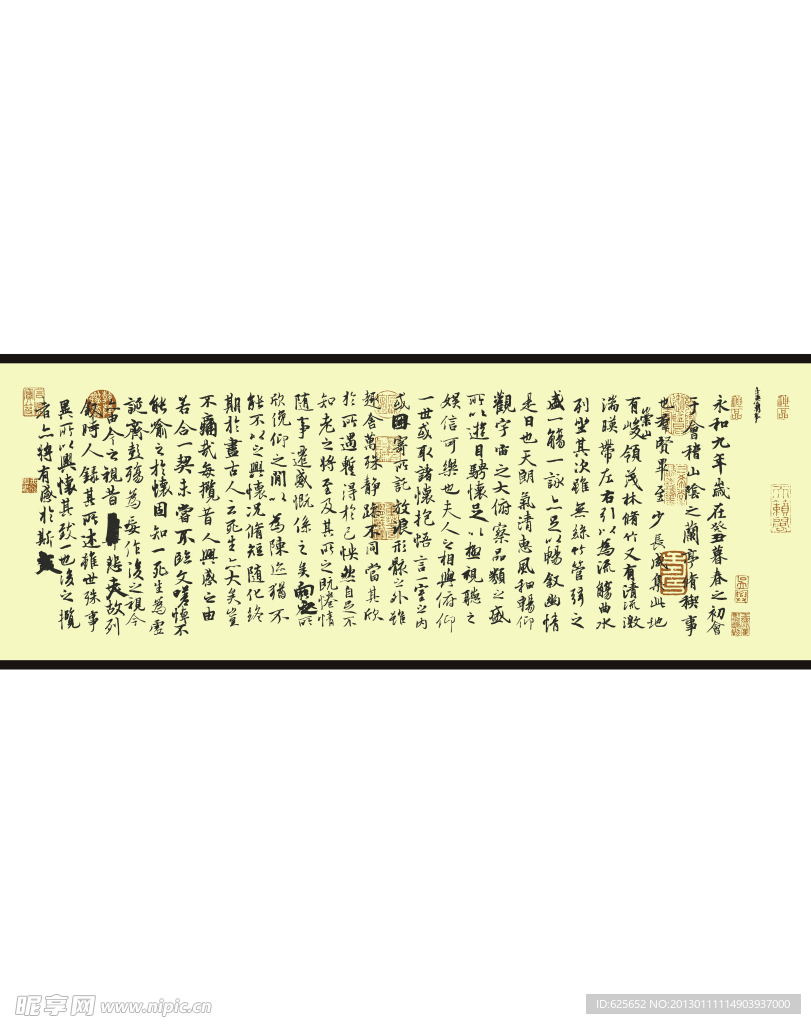 永和九年歲在癸丑暮春之初會
于會稽山陰之蘭亭脩稧事
也羣賢畢至少長咸集此地
有崇山峻領茂林脩竹又有清流激
湍暎帶左右引以為流觴曲水
列坐其次雖無絲竹管弦之
盛一觴一詠亦足以暢叙幽情
是日也天朗氣清惠風和暢仰
觀宇宙之大俯察品類之盛
所以遊目騁懷足以極視聽之
娛信可樂也夫人之相與俯仰
一世或取諸懷抱悟言一室之內
或因寄所託放浪形骸之外雖
趣舍萬殊靜躁不同當其欣
於所遇暫得於己怏然自足不
知老之將至及其所之既惓情
隨事遷感慨係之矣向之所
欣俛仰之閒以為陳迹猶不
能不以之興懷況脩短隨化終
期於盡古人云死生亦大矣豈
不痛哉每攬昔人興感之由
若合一契未嘗不臨文嗟悼不
能喻之於懷固知一死生為虛
誕齊彭殤為妄作後之視今
亦由今之視昔悲夫故列
敘時人錄其所述雖世殊事
異所以興懷其致一也後之攬
者亦將有感於斯文
昵享网 www.nipic.cn
ID:625652 NO:20130111114903937000